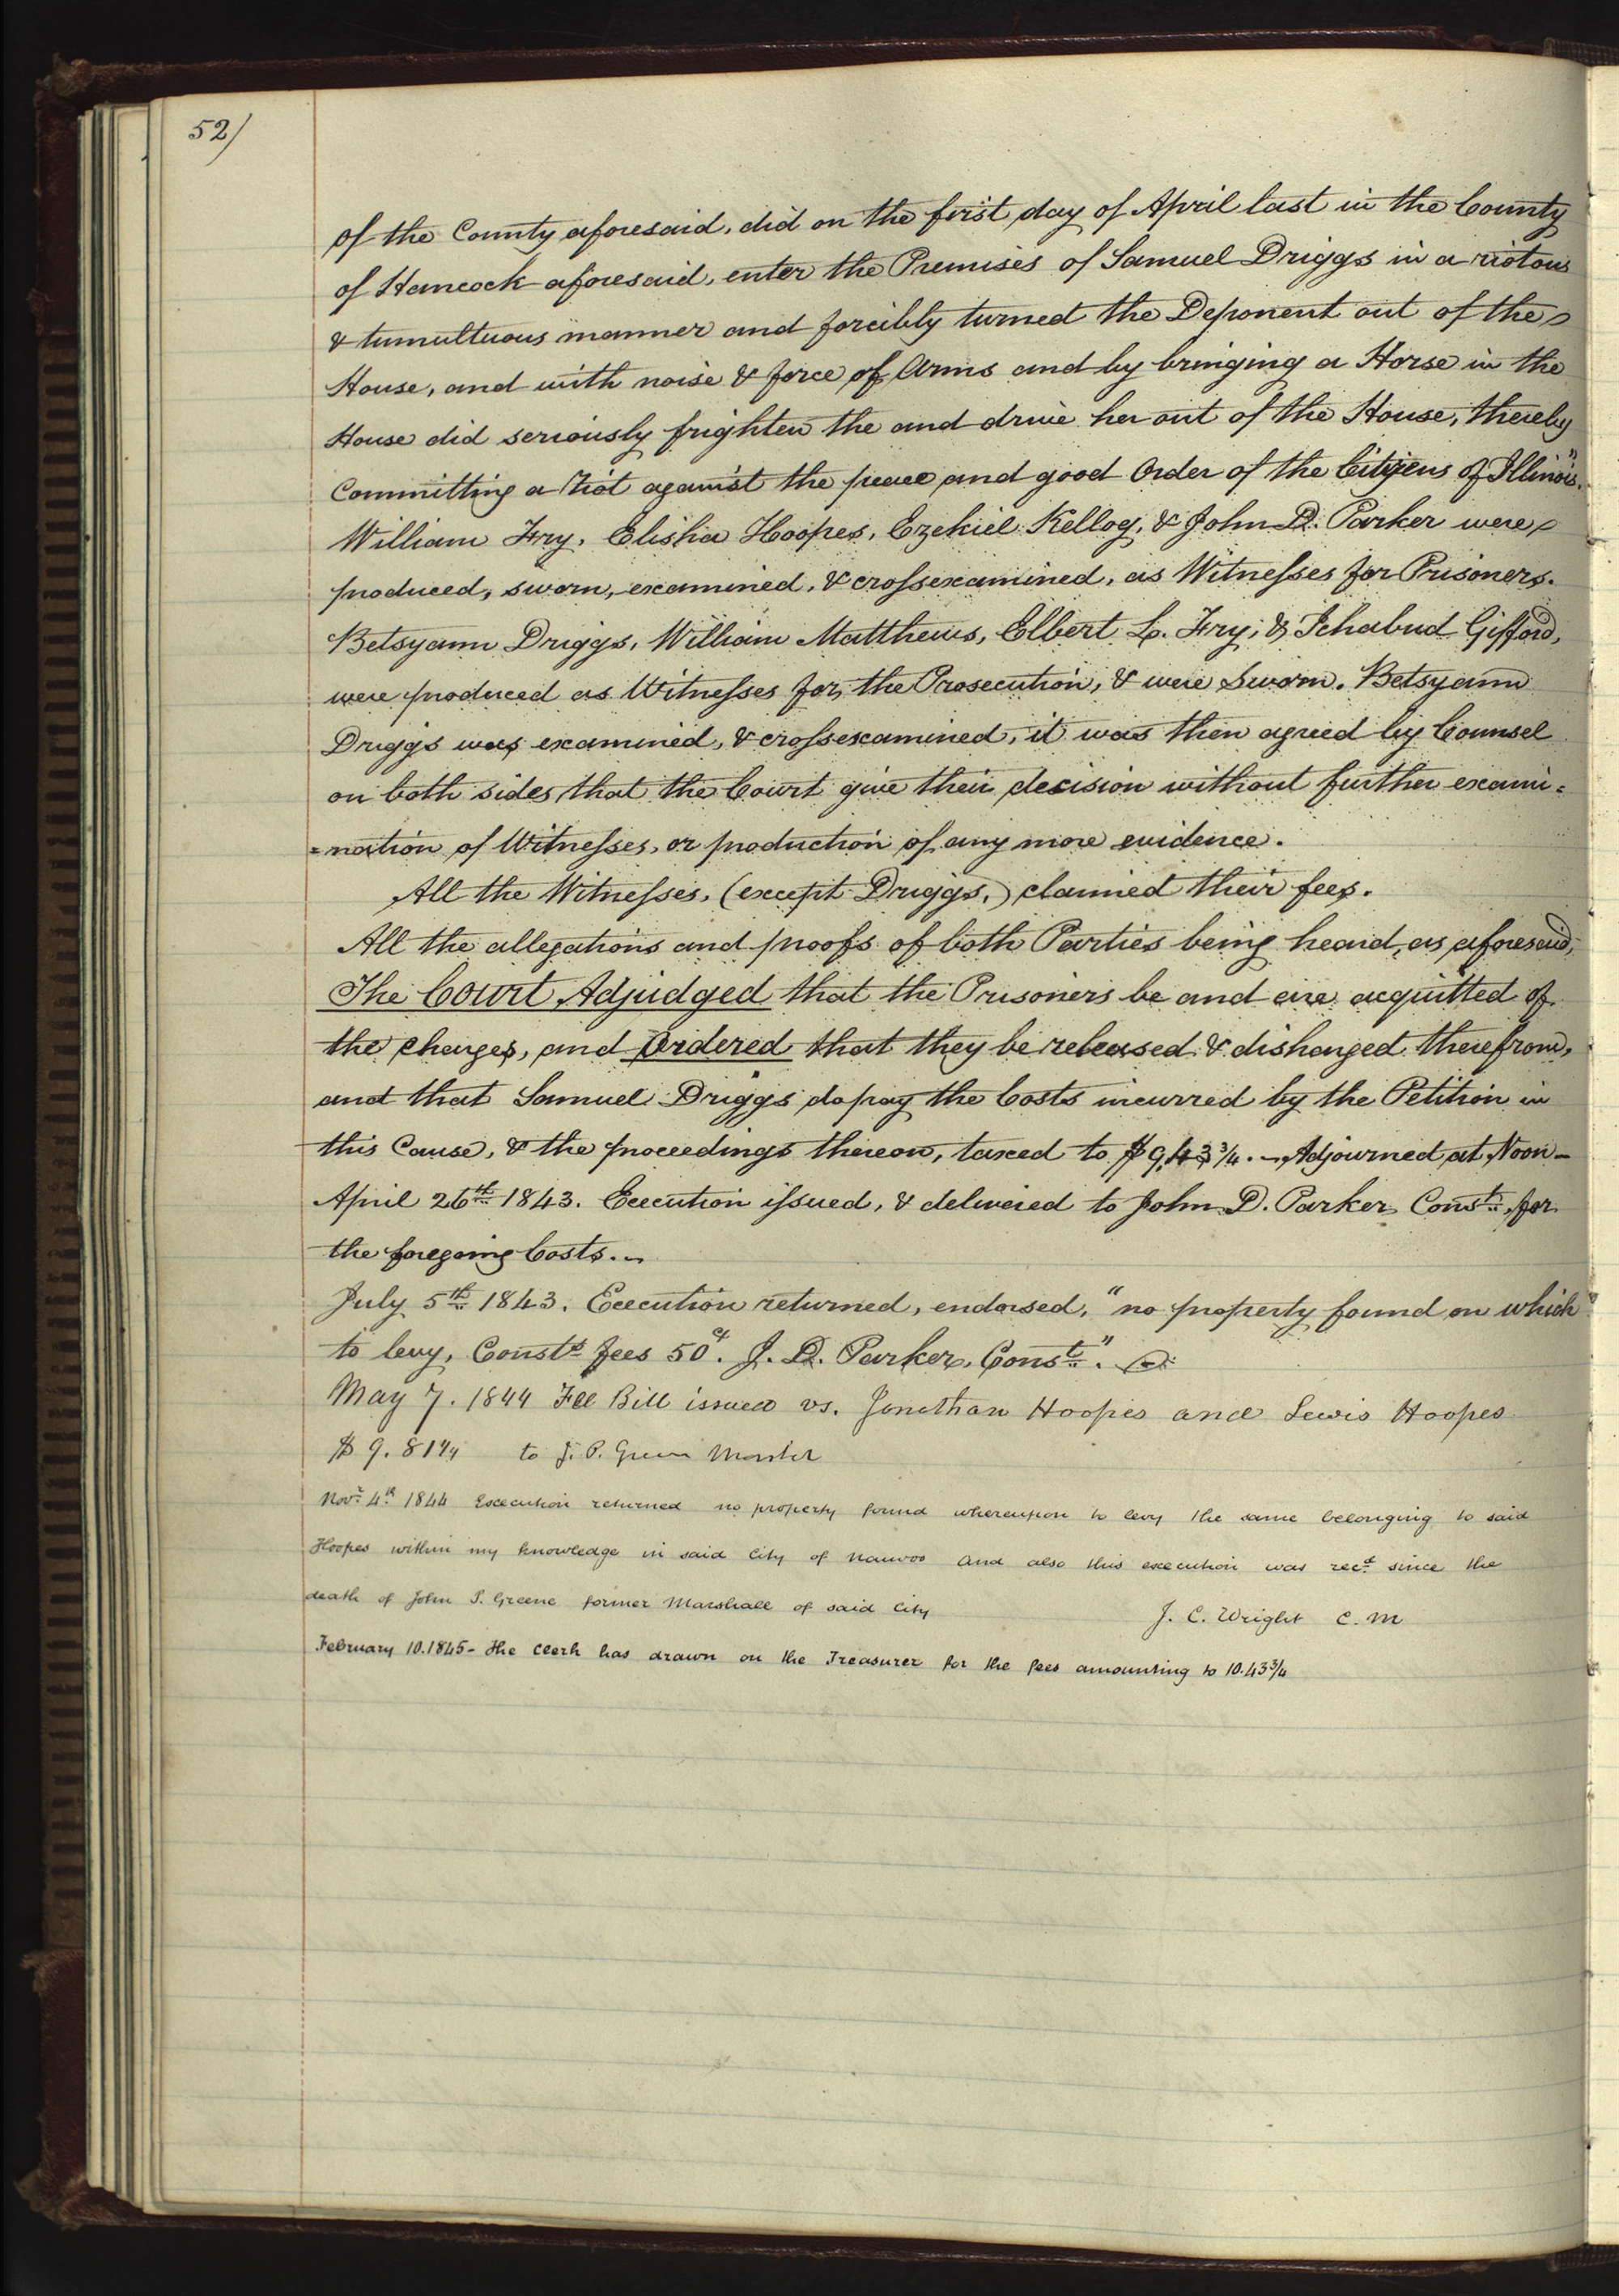 52/
of the County aforesaid, did on the first day of April last in the County
of Hancock aforesaid, enter the Premises of Samuel Driggs in a riotous
& tumultuous manner and forcibly turned the Deponent out of the
House, and with noise & force of Arms and by bringing a Horse in the
House did seriously frighten the and drive her out of the House, thereby
Committing a Riot against the peace and good Order of the Citizens of Illinois."
William Fry, Elisha Hoopes, Ezekiel Kellog, & John D. Parker were
produced, sworn, examined, & crossexamined, as Witnesses for Prisoners.
Betsyann Driggs, William Matthews, Elbert L. Fry, & Ichabud Gifford,
were produced as Witnesses for the Prosecution, & were Sworn. Betsyann
Driggs was examined, & crossexamined, it was then agreed by Counsel
on both sides that the Court give their decision without further exami=
=nation of Witnesses, or production of any more evidence.
All the Witnesses, (except Driggs,) claimed their fees.
All the allegations and proofs of both Parties being heard, as aforesaid,
The Court Adjudged that the Prisoners be and are acquitted of
the charges, and Ordered that they be released & dishanged therefrom,
and that Samuel Driggs do pay the Costs incurred by the Petition in
this Cause, & the proceedings thereon, taxed to $9,43 3/4. — Adjourned at Noon —
April 26th 1843. Execution issued, & delivered to John D. Parker Const. for
the foregoing Costs. —
July 5th 1843. Execution returned, endorsed, "no property found on which
to levy, Consts fees 50ct. J. D. Parker, Const."
May 7. 1844 Fee Bill issued vs. Jonathan Hoopes and Lewis Hoopes
$9. 81 1/4 to J. P. Green
Novr 4th 1844 Execution returned no property found whereupon to levy the same belonging to said
Hoopes within my knowledge in said City of Nauvoo and also this execution was recd since the
death of John P. Greene former Marshall of said City J. C. Wright C. M
February 10. 1845 - the Clerk has drawn on the Treasurer for the fees amounting to 10.43 3/4